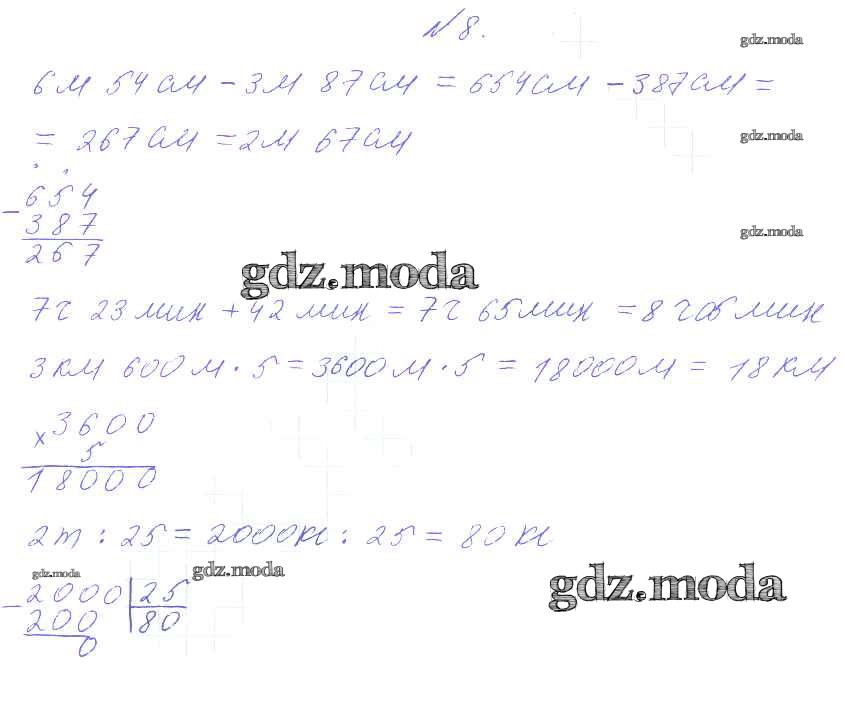 №8.
gdz.moda
6м 54см - 3м 87см = 654см - 387см =
= 267см = 2м 67см
gdz.moda
- 654
387
267
gdz.moda
gdz.moda
7ч 23мин + 42мин = 7ч 65мин = 8ч 05мин
3км 600м · 5 = 3600м · 5 = 18000м = 18км
x 3600
5
18000
2т : 25 = 2000кг : 25 = 80кг
gdz.moda
gdz.moda
gdz.moda
- 2000 | 25
200 | 80
0